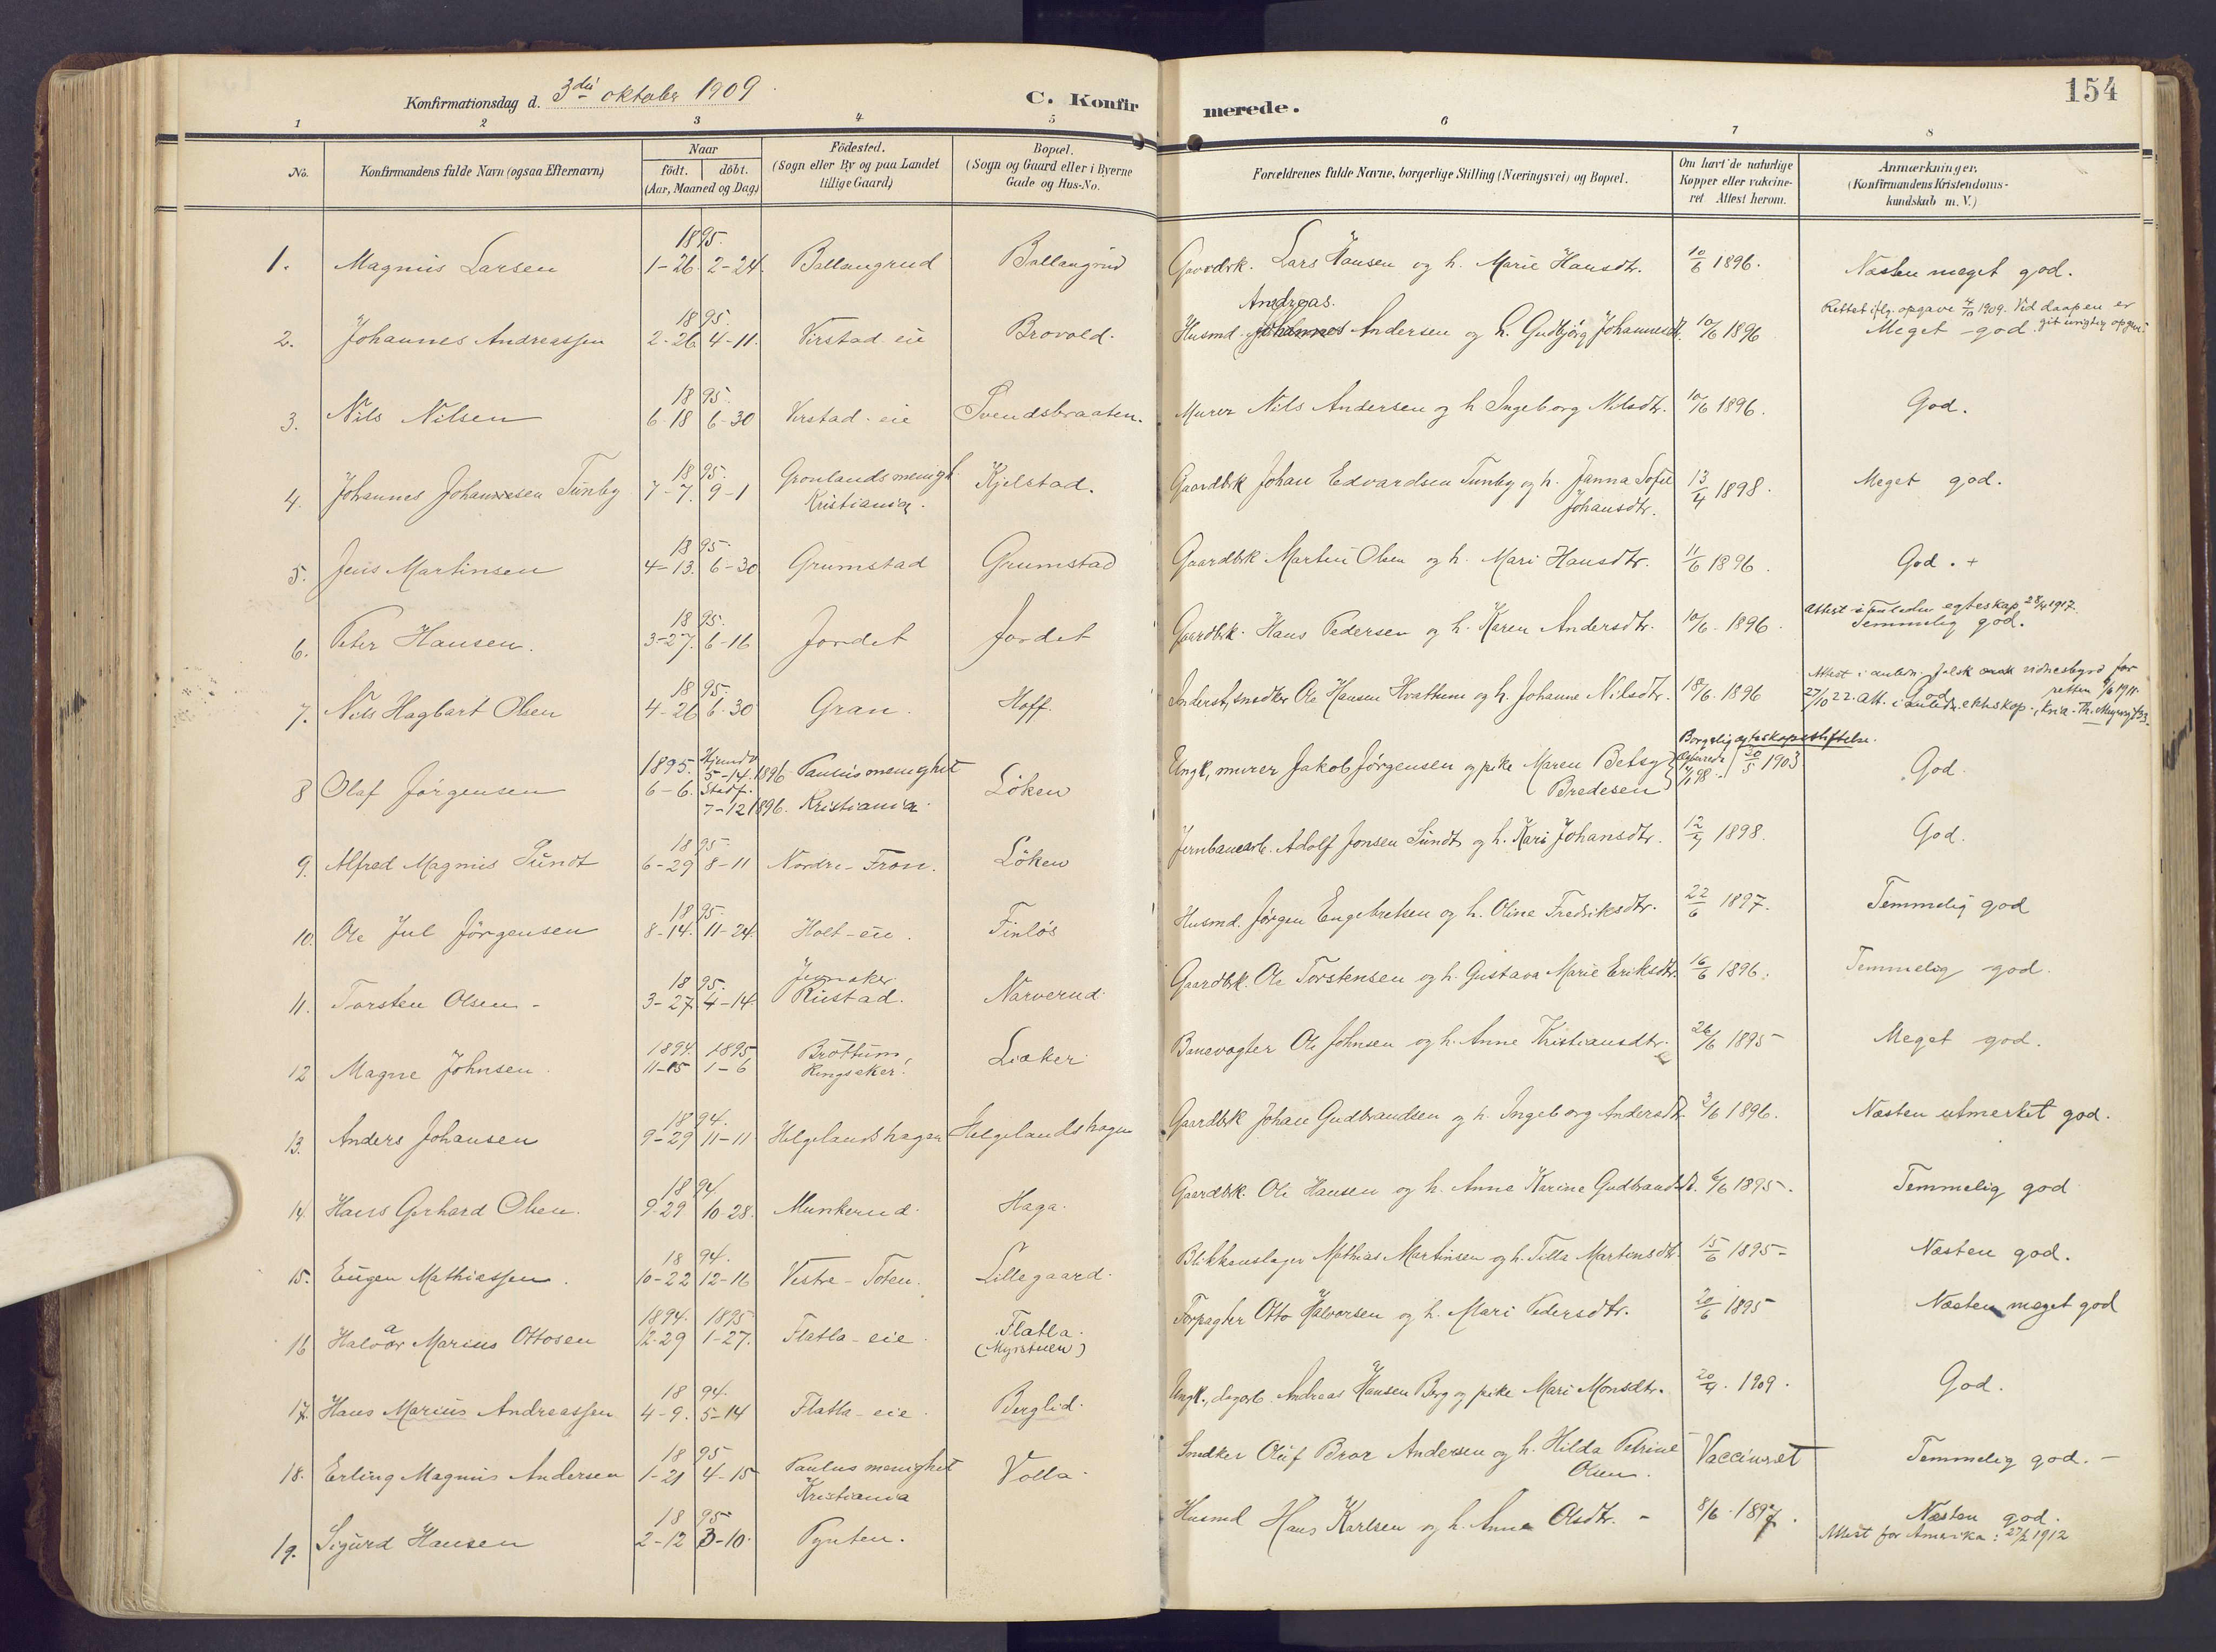 154
Konfirmationsdag d. 3die oktober 1909
C. Konfirmerede.
1 2 3 4 5 6 7 8
No. Konfirmandens fulde Navn (ogsaa Efternavn) Naar födt. döbt. (Aar, Maaned og Dag) Födested. (Sogn eller By og paa Landet tillige Gaard) Bopæl. (Sogn og Gaard eller i Byerne Gade og Hus-No. Forældrenes fulde Navne, borgerlige Stilling (Næringsvei) og Bopæl. Om havt de naturlige Kopper eller vakcineret Attest herom. Anmærkninger. (Konfirmandens Kristendomskundskab m. V.)
1. Magnus Larsen 1895. 1-26. 2-24. Ballangrud Ballangrud Gaardbrk. Lars Hansen og h. Marie Hansdtr. 10/6 1896. Næsten meget god.
2. Johannes Andreassen 1895. 2-26 4-11. Virstad-eie Brovold. Husmd. Johannes Andreas. Andersen og h. Gudbjörg Johannesdt. 10/6 1896 Rettet iflg. opgave 4/10 1909. Ved daapen er git urigtig opgave Meget god.
3. Nils Nilsen 1895. 6-18 6-30 Virstad-eie Svendsbraaten. Murer Nils Andersen og h Ingeborg Nilsdtr. 10/6 1896. God.
4. Johannes Johannesen Tunby 1895. 7-7. 9-1 Grønlands menigh. Kristiania. Kjelstad. Gaardbrk Johan Edvardsen Tunby og h. Janna Sofie Johansdtr. 13/4 1898. Meget god.
5. Jens Martinsen 1895. 4-13. 6-30 Grumstad Grumstad Gaardbrk. Martin Olsen og h. Mari Hansdtr. 11/6 1896. God. +
6. Peter Hansen. 1895. 3-27. 6-16 Jordet Jordet Gaardbrk. Hans Pedersen og h. Karen Andersdtr. 10/6. 1896. Attest i anledn egteskap 28/4 1917. Temmelig god.
7. Nils Hagbart Olsen 1895. 4-26 6-30 Gran. Hoff. Inderst, snedker Ole Hansen Hvattum og h. Johanne Nilsdtr. 18/6. 1896 Attest i anledn. falsk vidnesbyrd for retten 9/6 1911. God 27/10 22. att. i anledn. ekteskap, Kria.
8 Olaf Jörgensen 1895. 6-6. Hjemdv 5-14. 1896 Stadf. 7-12 1896. Paulus menighet Kristiania. Löken Ungk, murer Jakob Jørgensen og pike Maren Betsy Bredesen Borgelig egteskapsstiftelse. 20/5 1903 God.
9. Alfred Magnus Sundt 1895 6-29 8-11 Nordre-Fron. Löken Jernbanearb. Adolf Jonsen Sundt og h. Kari Johansdtr. 12/9 1898. God.
10. Ole Jul Jörgensen 1895. 8-14. 11-24. Holt-eie. Finlös Husmd. Jørgen Engebretsen og h. Oline Fredriksdtr. 22/6 1897. Temmelig god
11. Torsten Olsen - 1895. 3-27. 4-14. Jevnaker Rustad. Narverud. Gaardbrk. Ole Torstensen og h. Gustava Marie Eriksdtr. 16/6 1896. Temmelig god.
12 Magne Johnsen. 1894. 1895 11-15 1-6 Bröttum, Ringsaker. Liaker. Banevogter Ole Johnsen og h. Anne Kristiansdtr. 26/6 1895 Meget god.
13. Anders Johansen 1894. 9-29 11-11 Helgelandshagen Helgelandshagen Gaardbrk Johan Gudbrandsen og h. Ingeborg Andersdtr 3/6 1896. Næsten utmerket god.
14. Hans Gerhard Olsen. 1894 9-29 10-28. Munkerud. Haga. Gaardbrk. Ole Hansen og h. Anne Karine Gudbrandsdt. 6/6 1895. Temmelig god
15. Eugen Mathiassen. 1894. 10-22 12-16 Vestre-Toten. Lillegaard. Blikkenslager Mathias Martinsen og h. Tilla Martinsdtr. 15/6 1895 Næsten god.
16 Halvor Marius Ottosen 1894. 1895 12-29 1-27. Flatla-eie. Flatla. (Myrstuen) Forpagter Otto Halvorsen og h. Mari Pedersdtr. 20/6 1895 Næsten meget god
17. Hans Marius Andreassen 1894. 4-9. 5-14 Flatla-eie. Berglid. Ungk., dagarb. Andreas Hansen Berg og pike Mari Monsdtr. 20/9. 1909. God.
18. Erling Magnus Andersen 1895 1-21 4-15 Paulus menighet Kristiania Volla. Snedker Oluf Bror Andersen og h. Hilda Petrine Olsen. Vaccineret Temmelig god. -
19. Sigurd Hansen 1895 2-12 3-10. Pynten. Husmd Hans Karlsen og h. Anne Olsdtr. - 8/6. 1897. Næsten god. Attest for Amerika: 27/2 1912